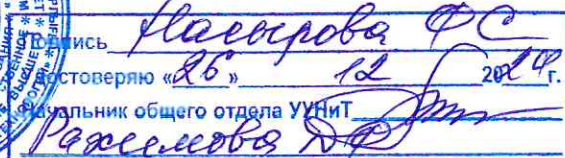 Подпись Насырова ФС
Удостоверяю «26» 12 2024 г.
Начальник общего отдела УУНиТ
Рахимова ДФ